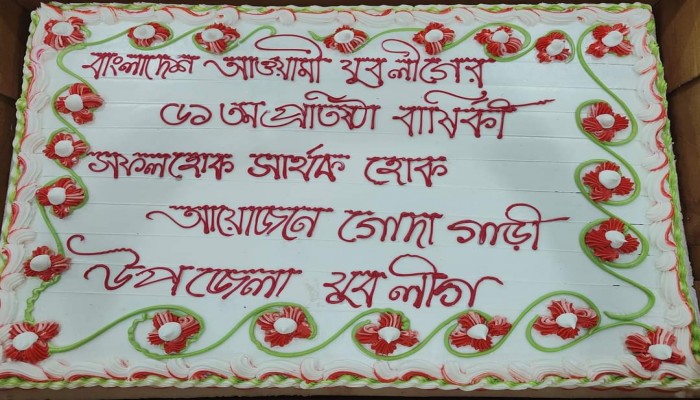 বাংলাদেশ আওয়ামী যুবলীগের
৫১ তম প্রতিষ্ঠা বার্ষিকী
সফলহোক সার্থক হোক
আয়োজনে গোদা গাড়ী
উপজেলা যুবলীগ